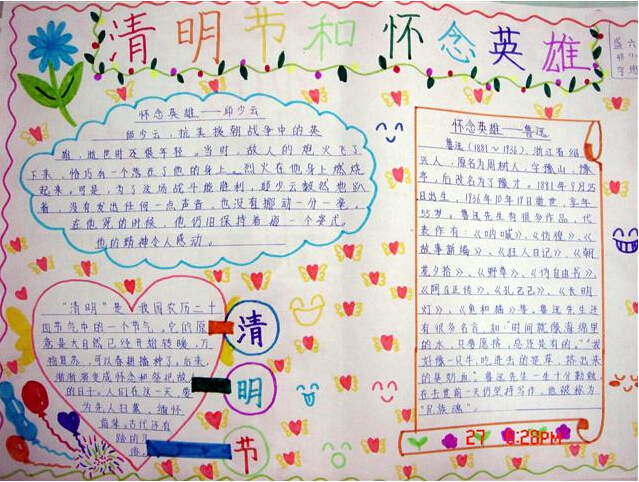 清明节和怀念英雄
怀念英雄——邱少云
邱少云,抗美援朝战争中的英
雄,逝世时还很年轻。当时,敌人的炮火飞了
下来,恰巧有一个忽在了他的身上。烈火在他身上燃烧
起来。可是,为了这场战斗能胜利,邱少云毅然地趴
着,没有发出任何一点声音,也没有挪动一分一毫。
在他死的时候,他仍旧保持着趴一个姿式。
他的精神令人感动。
怀念英雄——鲁迅
鲁迅(1881~1936),浙江省绍
兴人,原名为周树人,字豫山,豫
亭,后改名为豫才。1881年9月25
日出生,1936年10月19日逝世,享年
55岁。鲁迅先生有很多作品,代
表作有:《呐喊》、《彷徨》、《
故事新编》、《狂人日记》、《朝
花夕拾》、《野草》、《伪自由书》、
《阿Q正传》、《孔乙己》、《长明
灯》、《兔和猫》等。鲁迅先生还
有很多名言,如:"时间就像海绵里
的水,只要愿挤,总还是有的。""我
好像一只牛,吃进去的是草,挤出来
的是奶血。"鲁迅先生一生十分勤勉,
在去世前一天仍坚持写作。他被称为
"民族魂"。
"清明"是我国农历二十
四节气中的一个节气。它的原
意是大自然已经开始转暖,万
物复苏,可以春耕播种了。后来,
渐渐演变成怀念和祭祀故
的日子。人们在这一天,要
为亲人扫墓、缅怀
古代还有
清
明
节
27 8:28PM